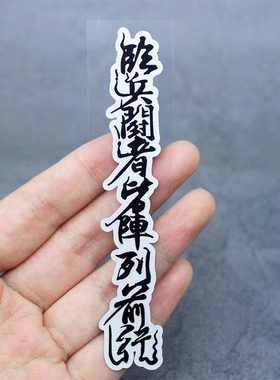 臨兵鬪者皆陣列前行